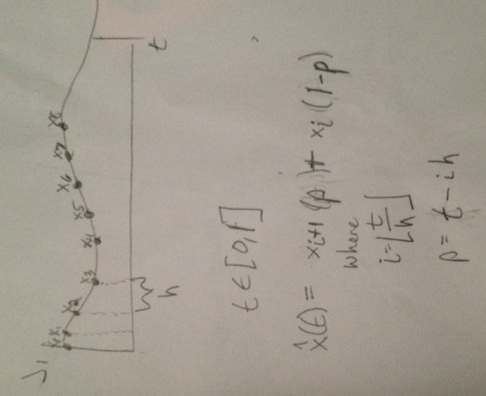 J1
x0 x1 x2 x3 x4 x5 x6 x7 x8
h
t
t ∈ [0,1]
x̂(t) = xi+1 (p) + xi (1-p)
where
i=⌊t/h⌋
p = t - ih